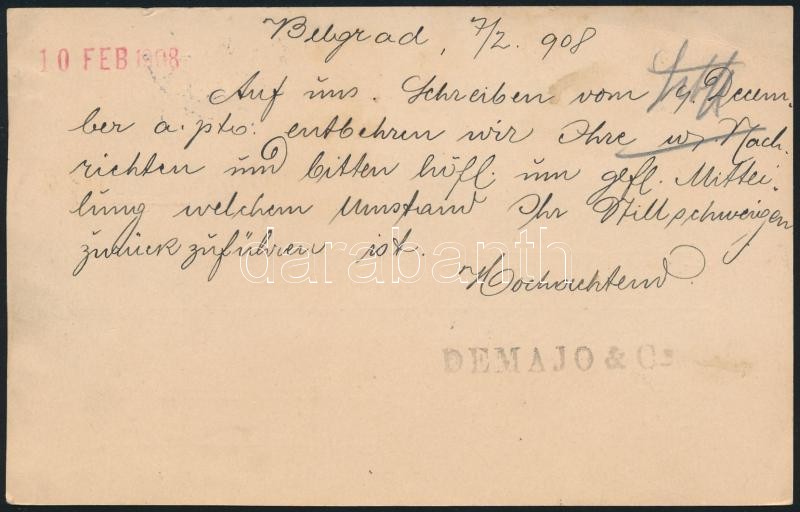 Belgrad, 7/2. 908
10 FEB 1908
Auf uns. Schreiben vom 4. Decem-
ber a. pto. entbehren wir Ihre w. Nach-
richten und bitten höfl. um gefl. Mittei-
lung welchem Umstand Ihr Stillschweigen
zurückzuführen ist.
darabanth
Hochachtend
DEMAJO & Co